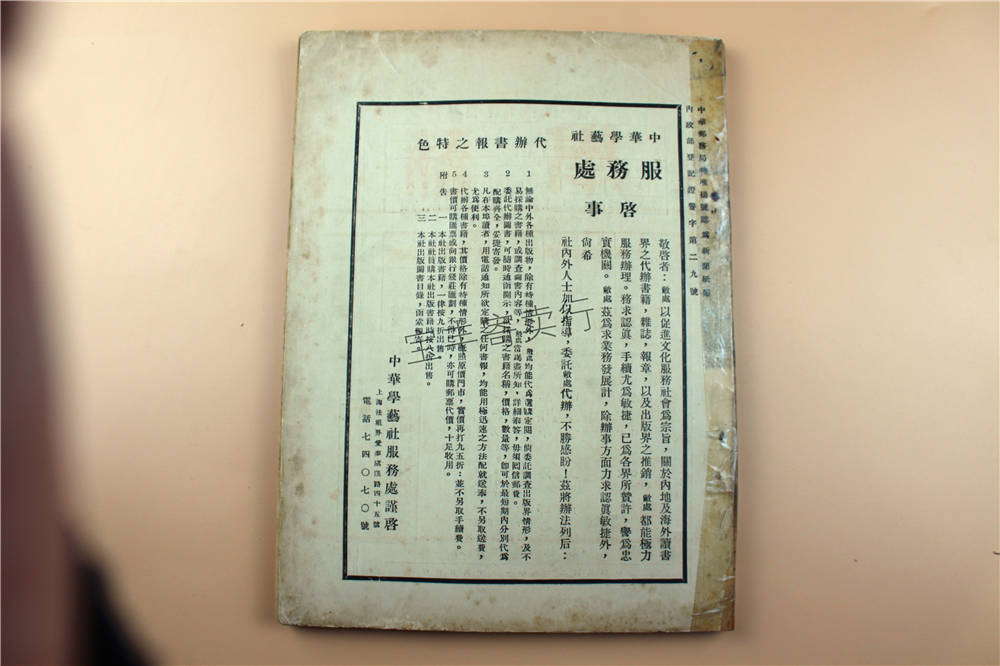 中華郵務局特准掛號認為新聞紙類
內政部登記證警字第二九號
中華學藝社
服務處
啓事
敬啓者：敝處以促進文化服務社會爲宗旨，關於內地及海外讀書
界之代辦書籍，雜誌，報章，以及出版界之推銷，敝處都能極力
服務辦理。務求認眞，手續尤爲敏捷，已爲各界所贊許，譽爲忠
實機關。敝處茲爲求業務發展計，除辦事方面力求認眞敏捷外，
尙希
社內外人士加以指導，委託敝處代辦，不勝感盼！茲將辦法列后：
代辦書報之特色
1 無論中外各種出版物，除有特種情形外，敝處均能代爲選購定閱，倘委託調查出版界情形，及不
易採購之書籍，或調查圖書內容等，敝處當竭盡所知，詳細奉答，毋須囘信郵費。
2 委託代辦圖書，可隨時通函開示，採購之書籍名稱，價格，數量等，卽可於最短期內分別代爲
配購齊全，妥捷寄發。
3 凡在本埠讀者，用電話通知所欲定購之任何書報，均能用極迅速之方法配就送奉，不另取送費，
尤爲便利。
4 代辦各種書籍，其價格除有特種情形外，槪照原價門市，實價再打九五折：並不另取手續費。
5 書價可購匯票或向銀行錢莊匯劃，不得已時，亦可購郵票代價，十足收用。
附告 一 本社出版書籍，一律按九折出售。
二 本社社員購本社出版書籍時按八折出售。
三 本社出版圖書目錄，函索卽寄。
中華學藝社服務處謹啓
上海法租界愛麥虞限路四十五號
電話七四〇七〇號